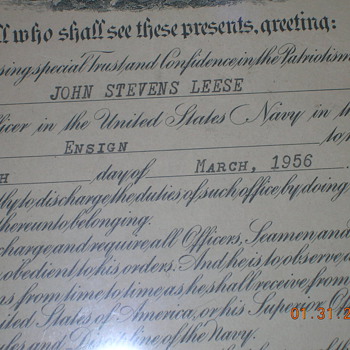 ll who shall see these presents, greeting:
sing special Trust and Confidence in the Patriotism
JOHN STEVENS LEESE
fficer in the United States Navy in the
ENSIGN to r
H day of MARCH, 1956
lly to discharge the duties of such office by doing
thereunto belonging.
charge and require all Officers, Seamen and
obedient to his orders. And he is to observe a
ns from time to time as he shall receive from
nited States of America, or his Superior Of
ules and Discipline of the Navy.
01.31.2